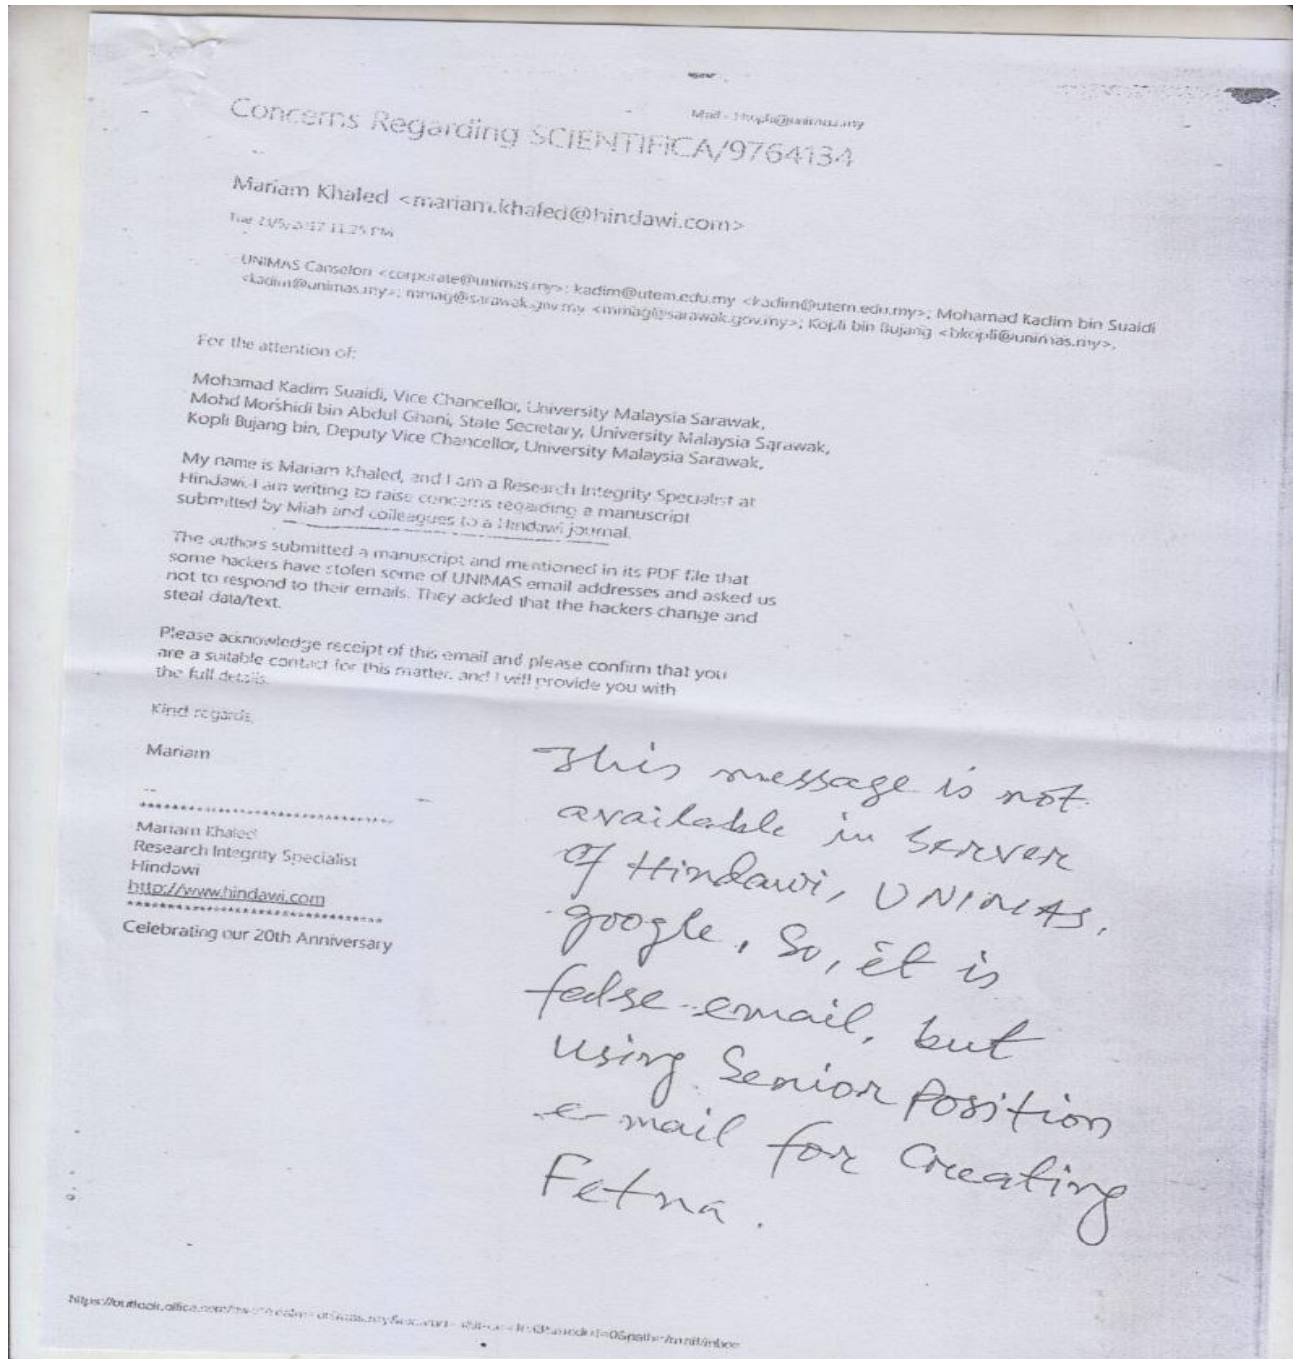 Mail - bkopli@unimas.my
Concerns Regarding SCIENTIFICA/9764134
Mariam Khaled <mariam.khaled@hindawi.com>
11:25 PM
UNIMAS Canselori <corporate@unimas.my>; kadim@utem.edu.my <kadim@utem.edu.my>; Mohamad Kadim bin Suaidi
<kadim@unimas.my>; mmag@sarawak.gov.my <mmag@sarawak.gov.my>; Kopli bin Bujang <bkopli@unimas.my>;
For the attention of:
Mohamad Kadim Suaidi, Vice Chancellor, University Malaysia Sarawak,
Mohd Morshidi bin Abdul Ghani, State Secretary, University Malaysia Sarawak,
Kopli Bujang bin, Deputy Vice Chancellor, University Malaysia Sarawak,
My name is Mariam Khaled, and I am a Research Integrity Specialist at
Hindawi. I am writing to raise concerns regarding a manuscript
submitted by Miah and colleagues to a Hindawi journal.
The authors submitted a manuscript and mentioned in its PDF file that
some hackers have stolen some of UNIMAS email addresses and asked us
not to respond to their emails. They added that the hackers change and
steal data/text.
Please acknowledge receipt of this email and please confirm that you
are a suitable contact for this matter, and I will provide you with
the full details.
Kind regards,
Mariam
--
********************************
Mariam Khaled
Research Integrity Specialist
Hindawi
http://www.hindawi.com
********************************
Celebrating our 20th Anniversary
This message is not
available in server
of Hindawi, UNIMAS,
google, So, it is
false email, but
using Senior Position
e-mail for Creating
Fetna.